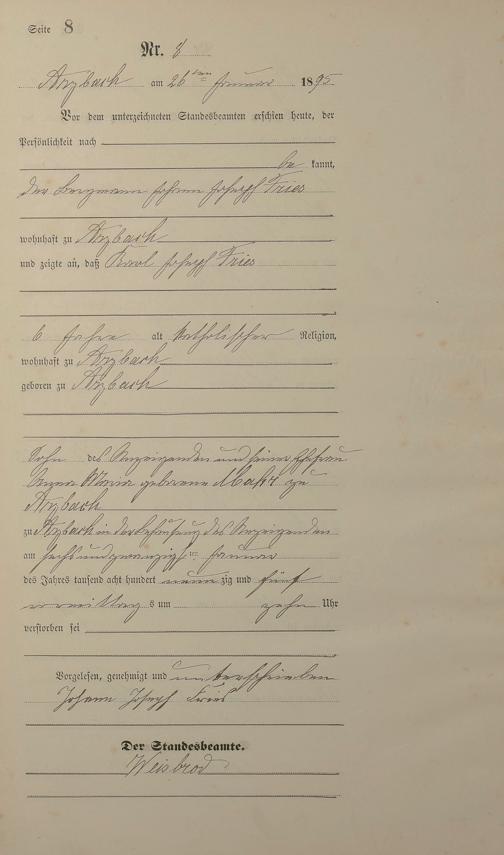 Seite 8
Nr. 8
Arzbach am 26ten Januar 1895
Vor dem unterzeichneten Standesbeamten erschien heute, der
Persönlichkeit nach
be kannt,
der Bergmann Johann Joseph Fries
wohnhaft zu Arzbach
und zeigte an, daß Karl Joseph Fries
6 Jahre alt katholischer Religion,
wohnhaft zu Arzbach
geboren zu Arzbach
Sohn des Anzeigenden und seiner Ehefrau
Anna Maria geborene Mahr zu
Arzbach
zu Arzbach in der Behausung des Anzeigenden
am sechsundzwanzigsten Januar
des Jahres tausend acht hundert neunzig und fünf
vormittags um zehn Uhr
verstorben sei
Vorgelesen, genehmigt und unterschrieben
Johann Joseph Fries
Der Standesbeamte.
Weisbrod